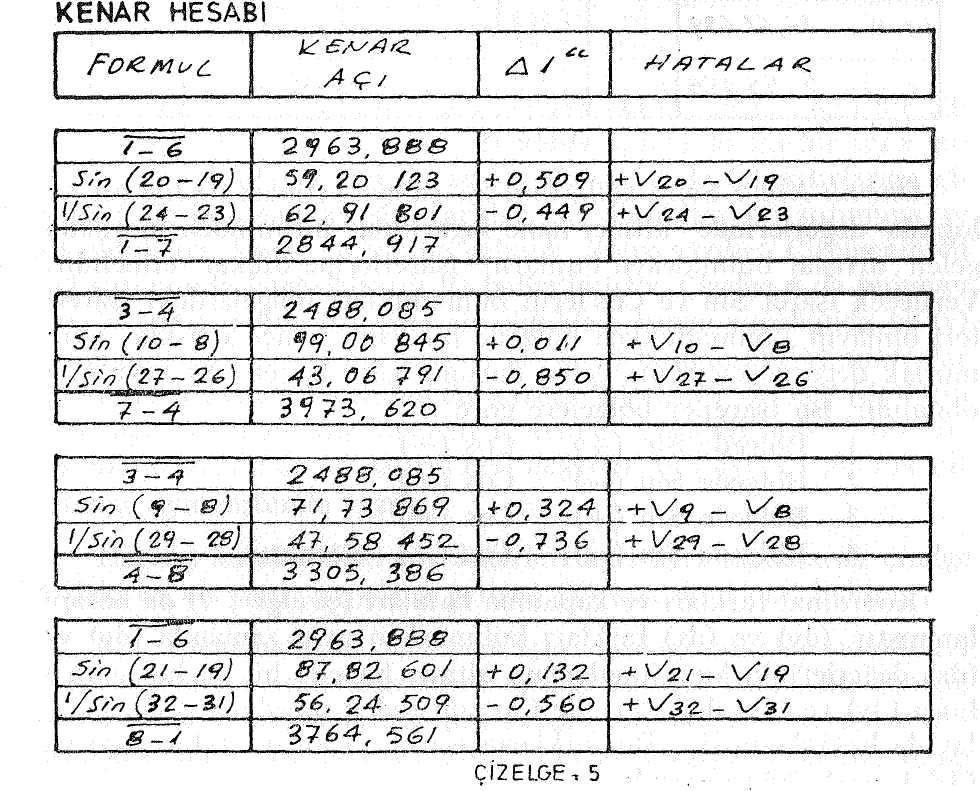 KENAR HESABI
FORMUL KENAR AÇI Δ1" HATALAR
1-6 2963,888
Sin (20-19) 59,20 123 +0,509 +V20 -V19
1/Sin (24-23) 62,91 801 -0,449 +V24 - V23
1-7 2844,917
3-4 2488,085
Sin (10-8) 99,00 845 +0,011 +V10 - V8
1/Sin (27-26) 43,06 791 -0,850 +V27 - V26
7-4 3973,620
3-4 2488,085
Sin (9-8) 71,73 869 +0,324 +V9 - V8
1/Sin (29-28) 47,58 452 -0,736 +V29 - V28
4-8 3305,386
1-6 2963,888
Sin (21-19) 87,82 601 +0,132 +V21 - V19
1/Sin (32-31) 56,24 509 -0,560 +V32 - V31
8-1 3764,561
ÇİZELGE. 5